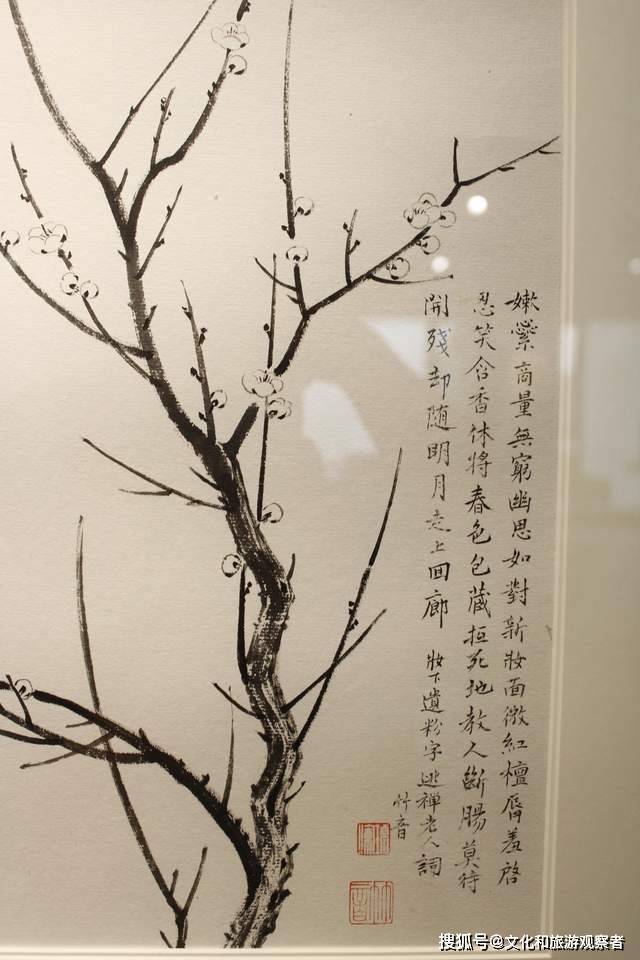 嫩蘂商量無窮幽思如對新妝面微紅檀脣羞啓
忍笑含香休將春色包藏抵死地教人斷腸莫待
開殘却随明月走上回廊 妝下遺粉字 逃禪老人詞
竹音
搜狐号@文化和旅游观察者